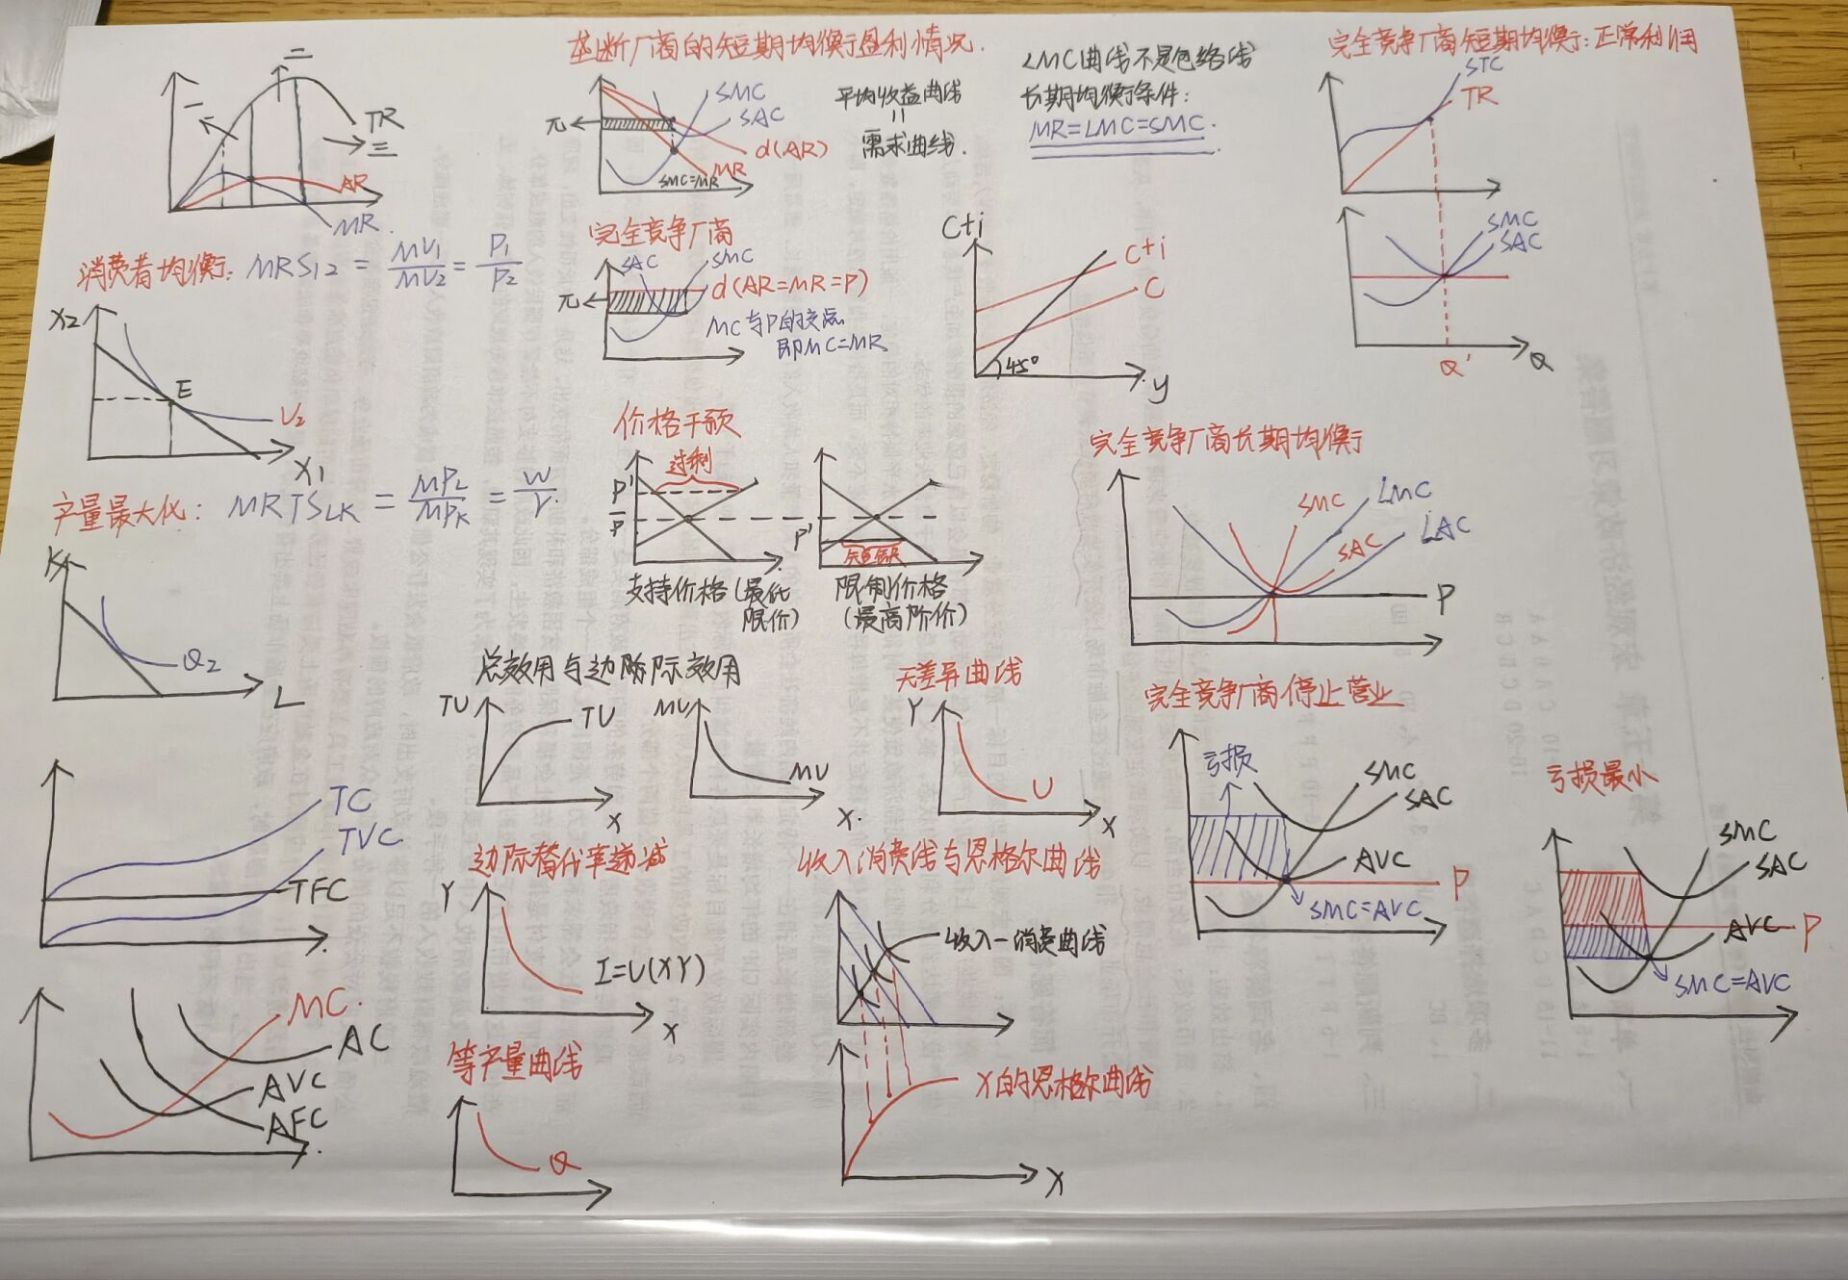 一
二
三
TR
AR
MR
垄断厂商的短期均衡盈利情况.
π
SMC
SAC
d(AR)
MR
SMC=MR
平均收益曲线
=
需求曲线.
LMC曲线不是包络线
长期均衡条件:
MR=LMC=SMC.
完全竞争厂商短期均衡:正常利润
STC
TR
SMC
SAC
Q'
Q
消费者均衡: MRS12 = MU1/MU2 = P1/P2
X2
E
U2
X1
完全竞争厂商
SAC
SMC
π
d(AR=MR=P)
MC与P的交点
即MC=MR
C+i
C+i
C
45°
y
产量最大化: MRTSLK = MPL/MPK = W/r
K
Q2
L
价格干预
过剩
P'
P
支持价格(最低
限价)
P'
短缺
限制价格
(最高限价)
完全竞争厂商长期均衡
SMC
LMC
SAC
LAC
P
总效用与边际效用
TU
TU
X
MU
MU
X.
无差异曲线
Y
U
X
完全竞争厂商停止营业
亏损
SMC
SAC
AVC
P
SMC=AVC
亏损最小
SMC
SAC
AVC
P
SMC=AVC
TC
TVC
TFC
边际替代率递减
Y
I=U(XY)
X
收入消费线与恩格尔曲线
收入-消费曲线
X的恩格尔曲线
X
MC.
AC
AVC
AFC
等产量曲线
Q